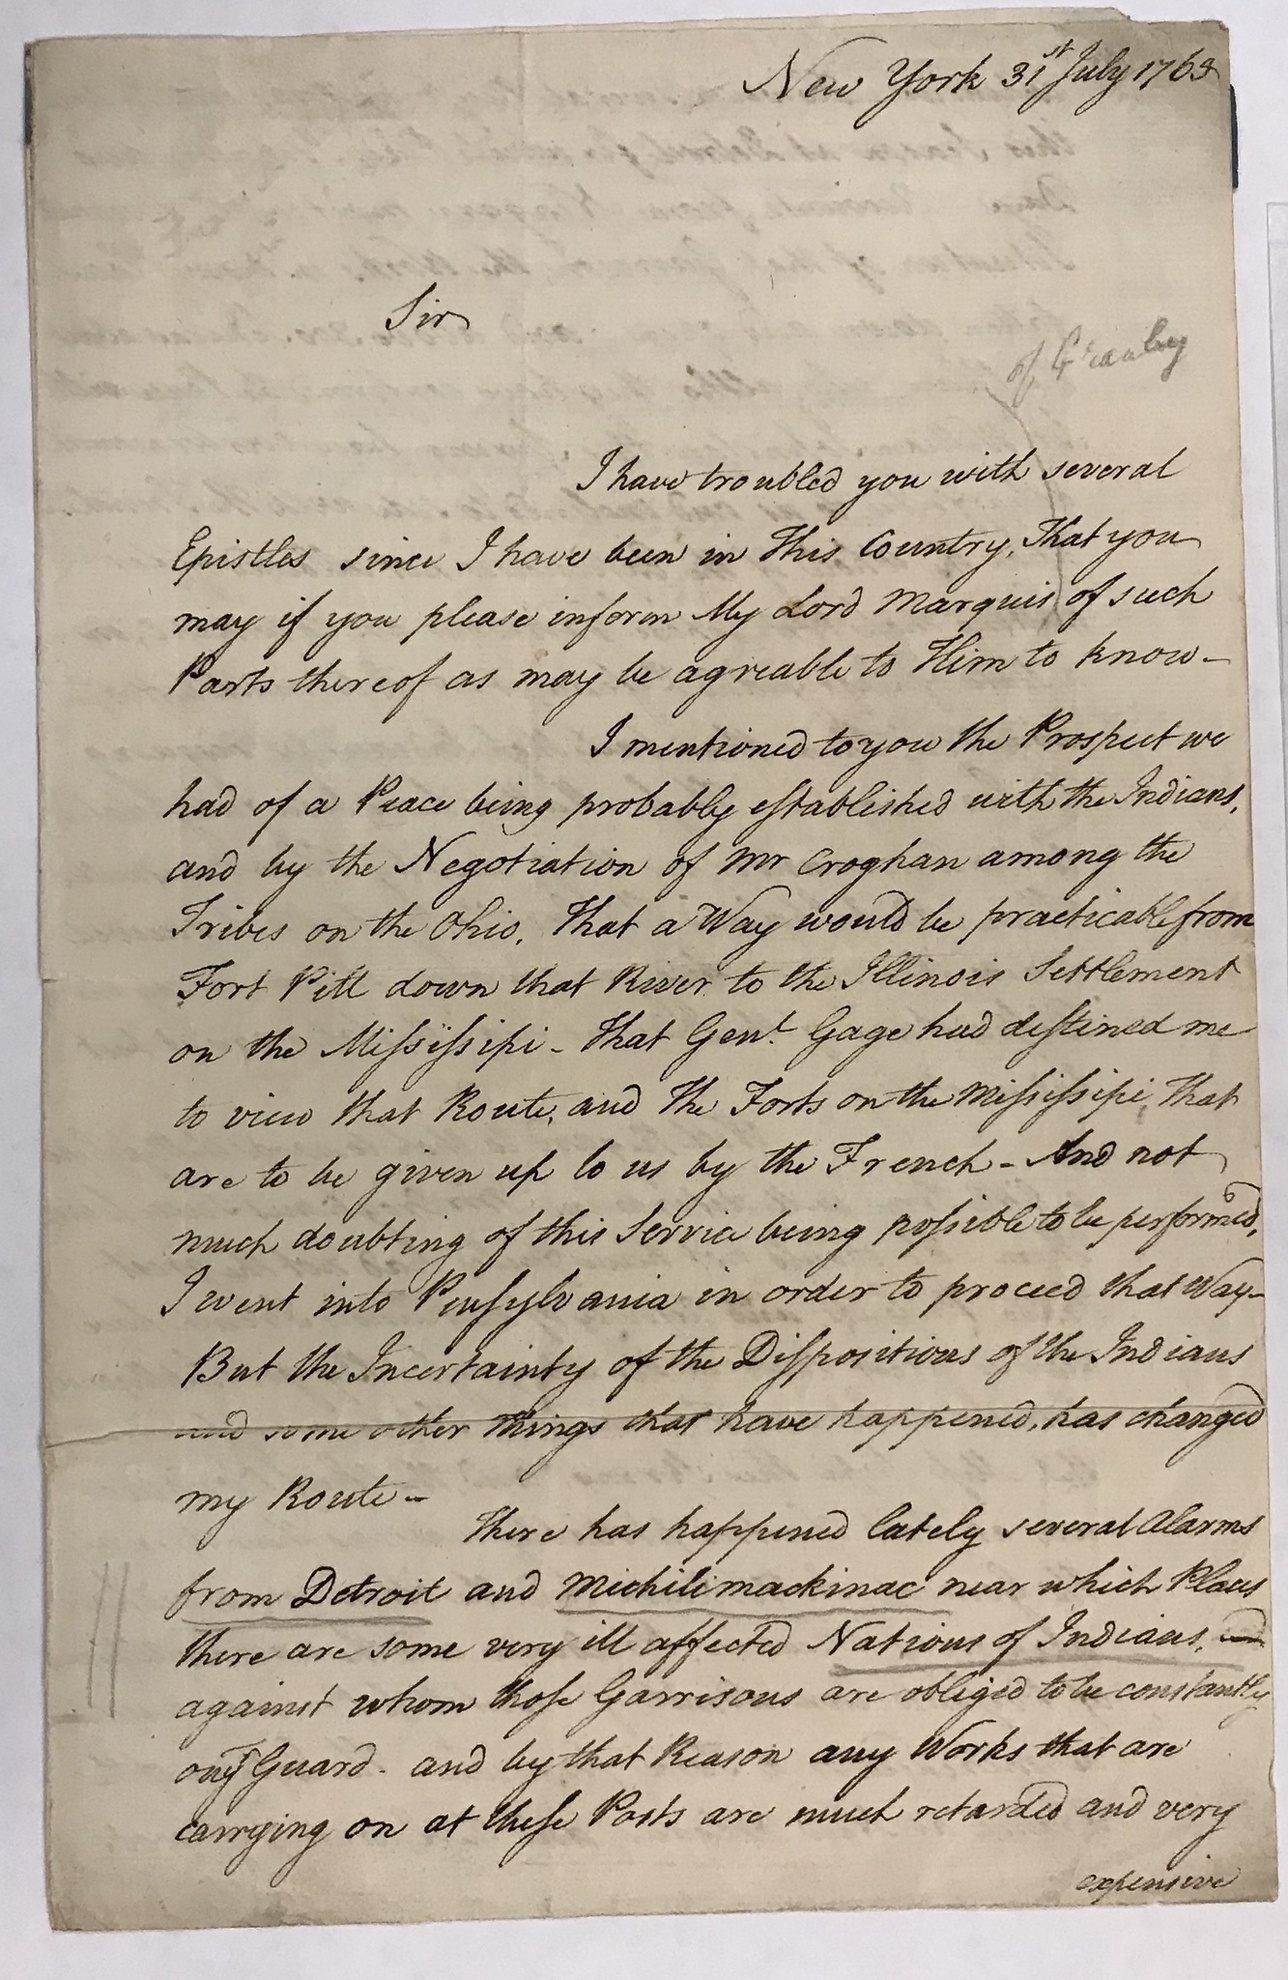 New York 31st July 1765
Sir
of Granby
I have troubled you with several
Epistles since I have been in This Country, That you
may if you please inform My Lord Marquis of such
Parts thereof as may be agreable to Him to know –
I mentioned to you the Prospect we
had of a Peace being probably established with the Indians,
and by the Negotiation of Mr Croghan among the
Tribes on the Ohio, That a Way would be practicable from
Fort Pitt down that River to the Illinois Settlement
on the Missisipi – That Genl. Gage had destined me
to view that Route, and The Forts on the Missisipi, That
are to be given up to us by the French – And not
much doubting of this Service being possible to be performed,
I went into Pensylvania in order to proceed that Way –
But the Incertainty of the Dispositions of the Indians
and some other things that have happened, has changed
my Route –
There has happened lately several Alarms
from Detroit and Michilimackinac near which Places
there are some very ill affected Nations of Indians, and
against whom those Garrisons are obliged to be constantly
on yr Guard – and by that Reason any Works that are
carrying on at these Posts are much retarded and very
expensive